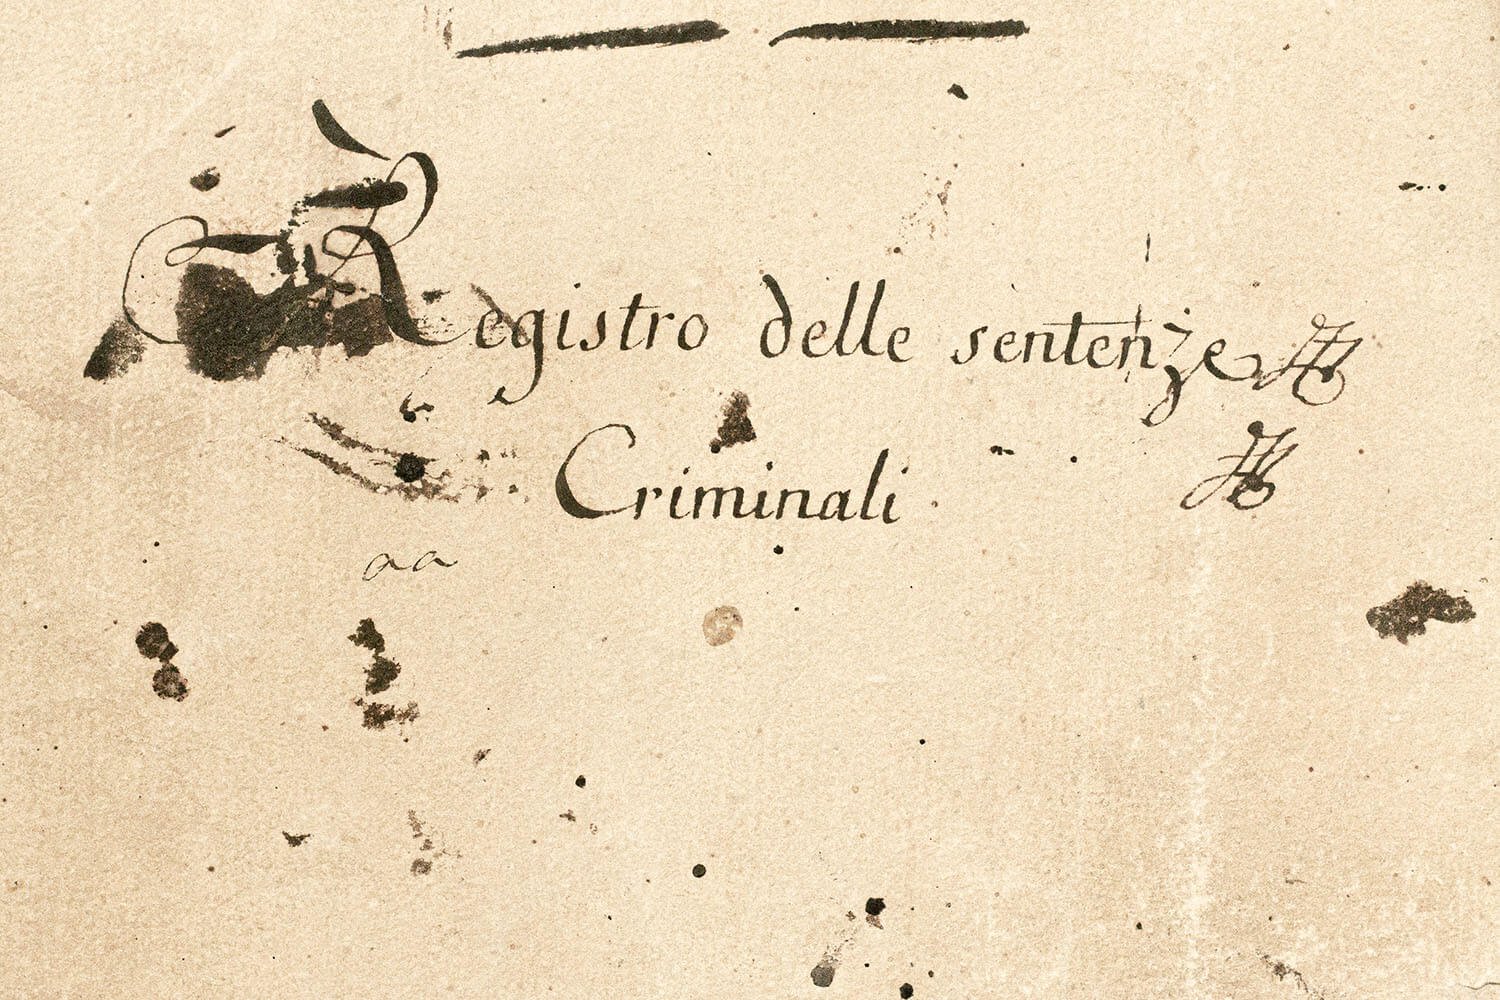 Registro delle sentenze
Criminali
aa